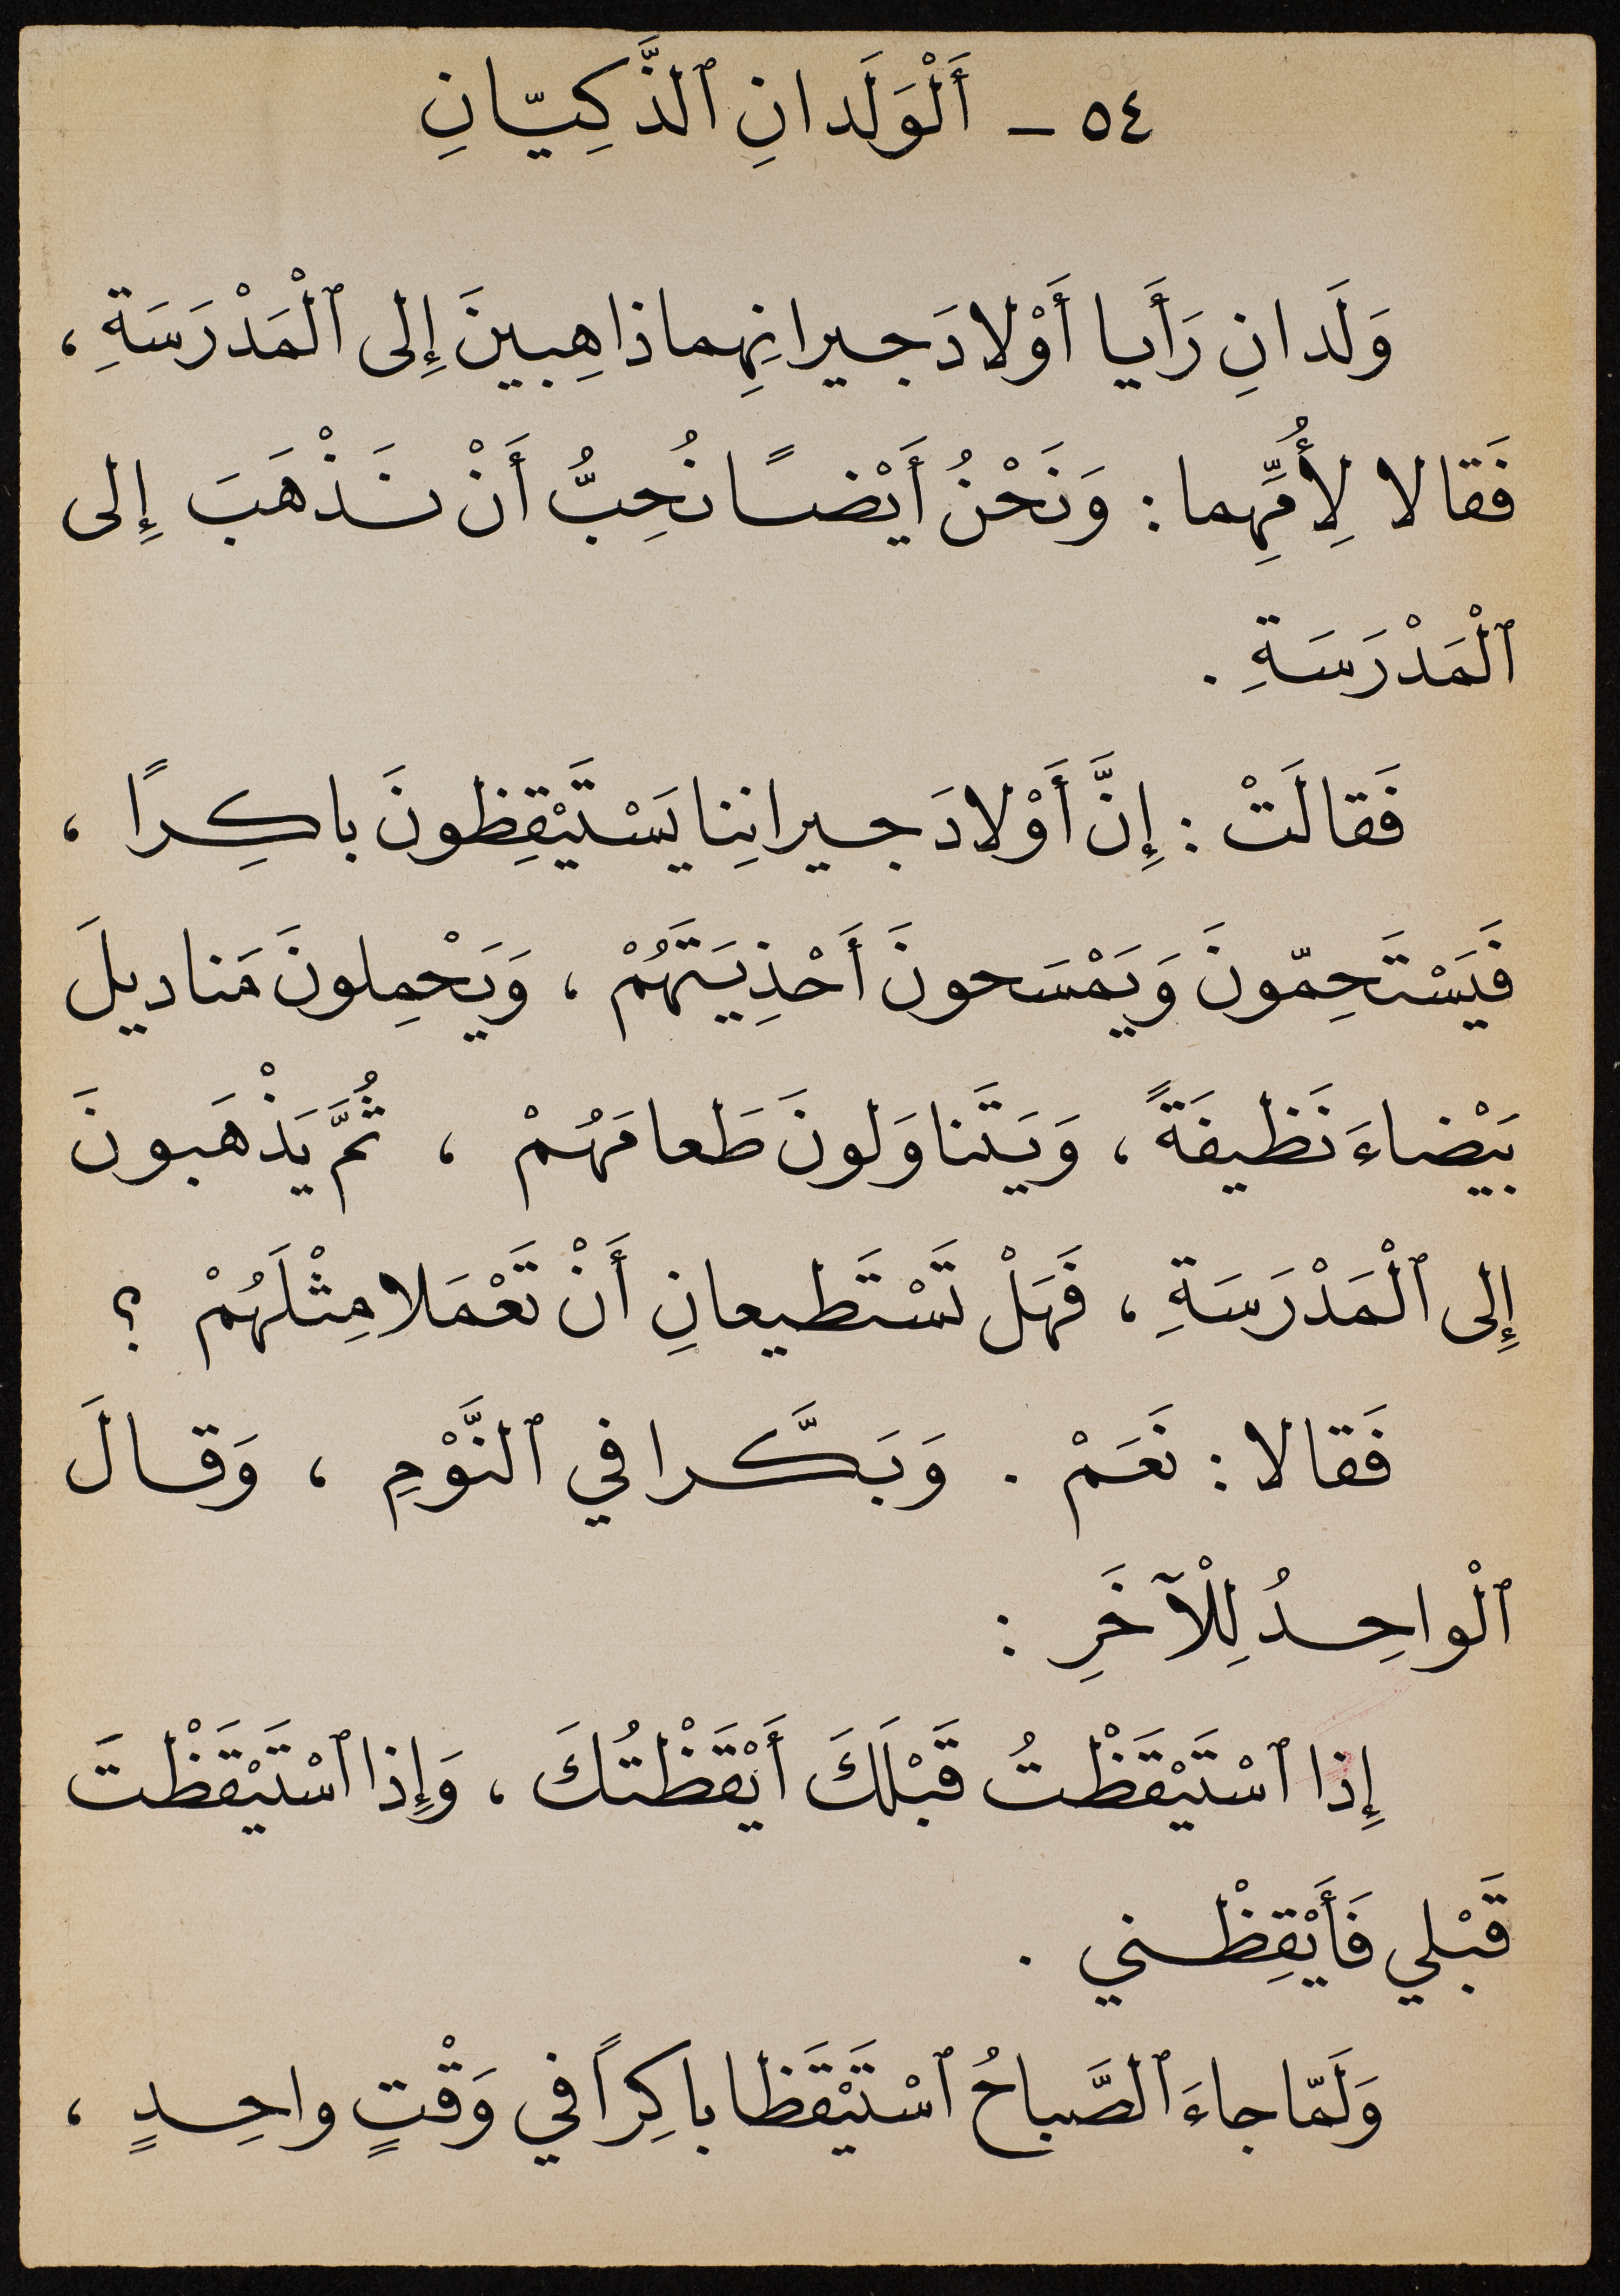 ٥٤ ـ أَلْوَلَدانِ ٱلذَّكِيّانِ
وَلَدانِ رَأَيا أَوْلادَ جيرانِهِما ذاهِبينَ إِلى ٱلْمَدْرَسَةِ ،
فَقالا لِأُمِّهِما : وَنَحْنُ أَيْضًا نُحِبُّ أَنْ نَذْهَبَ إِلى
ٱلْمَدْرَسَةِ .
فَقالَتْ : إِنَّ أَوْلادَ جيرانِنا يَسْتَيْقِظونَ باكِرًا ،
فَيَسْتَحِمّونَ وَيَمْسَحونَ أَحْذِيَتَهُمْ ، وَيَحْمِلونَ مَناديلَ
بَيْضاءَ نَظيفَةً ، وَيَتَناوَلونَ طَعامَهُمْ ، ثُمَّ يَذْهَبونَ
إِلى ٱلْمَدْرَسَةِ ، فَهَلْ تَسْتَطيعانِ أَنْ تَعْمَلا مِثْلَهُمْ ؟
فَقالا : نَعَمْ . وَبَكَّرا في ٱلنَّوْمِ ، وَقالَ
ٱلْواحِدُ لِلْآخَرِ :
إِذا ٱسْتَيْقَظْتُ قَبْلَكَ أَيْقَظْتُكَ ، وَإِذا ٱسْتَيْقَظْتَ
قَبْلي فَأَيْقِظْني .
وَلَمّا جاءَ ٱلصَّباحُ ٱسْتَيْقَظا باكِراً في وَقْتٍ واحِدٍ ،